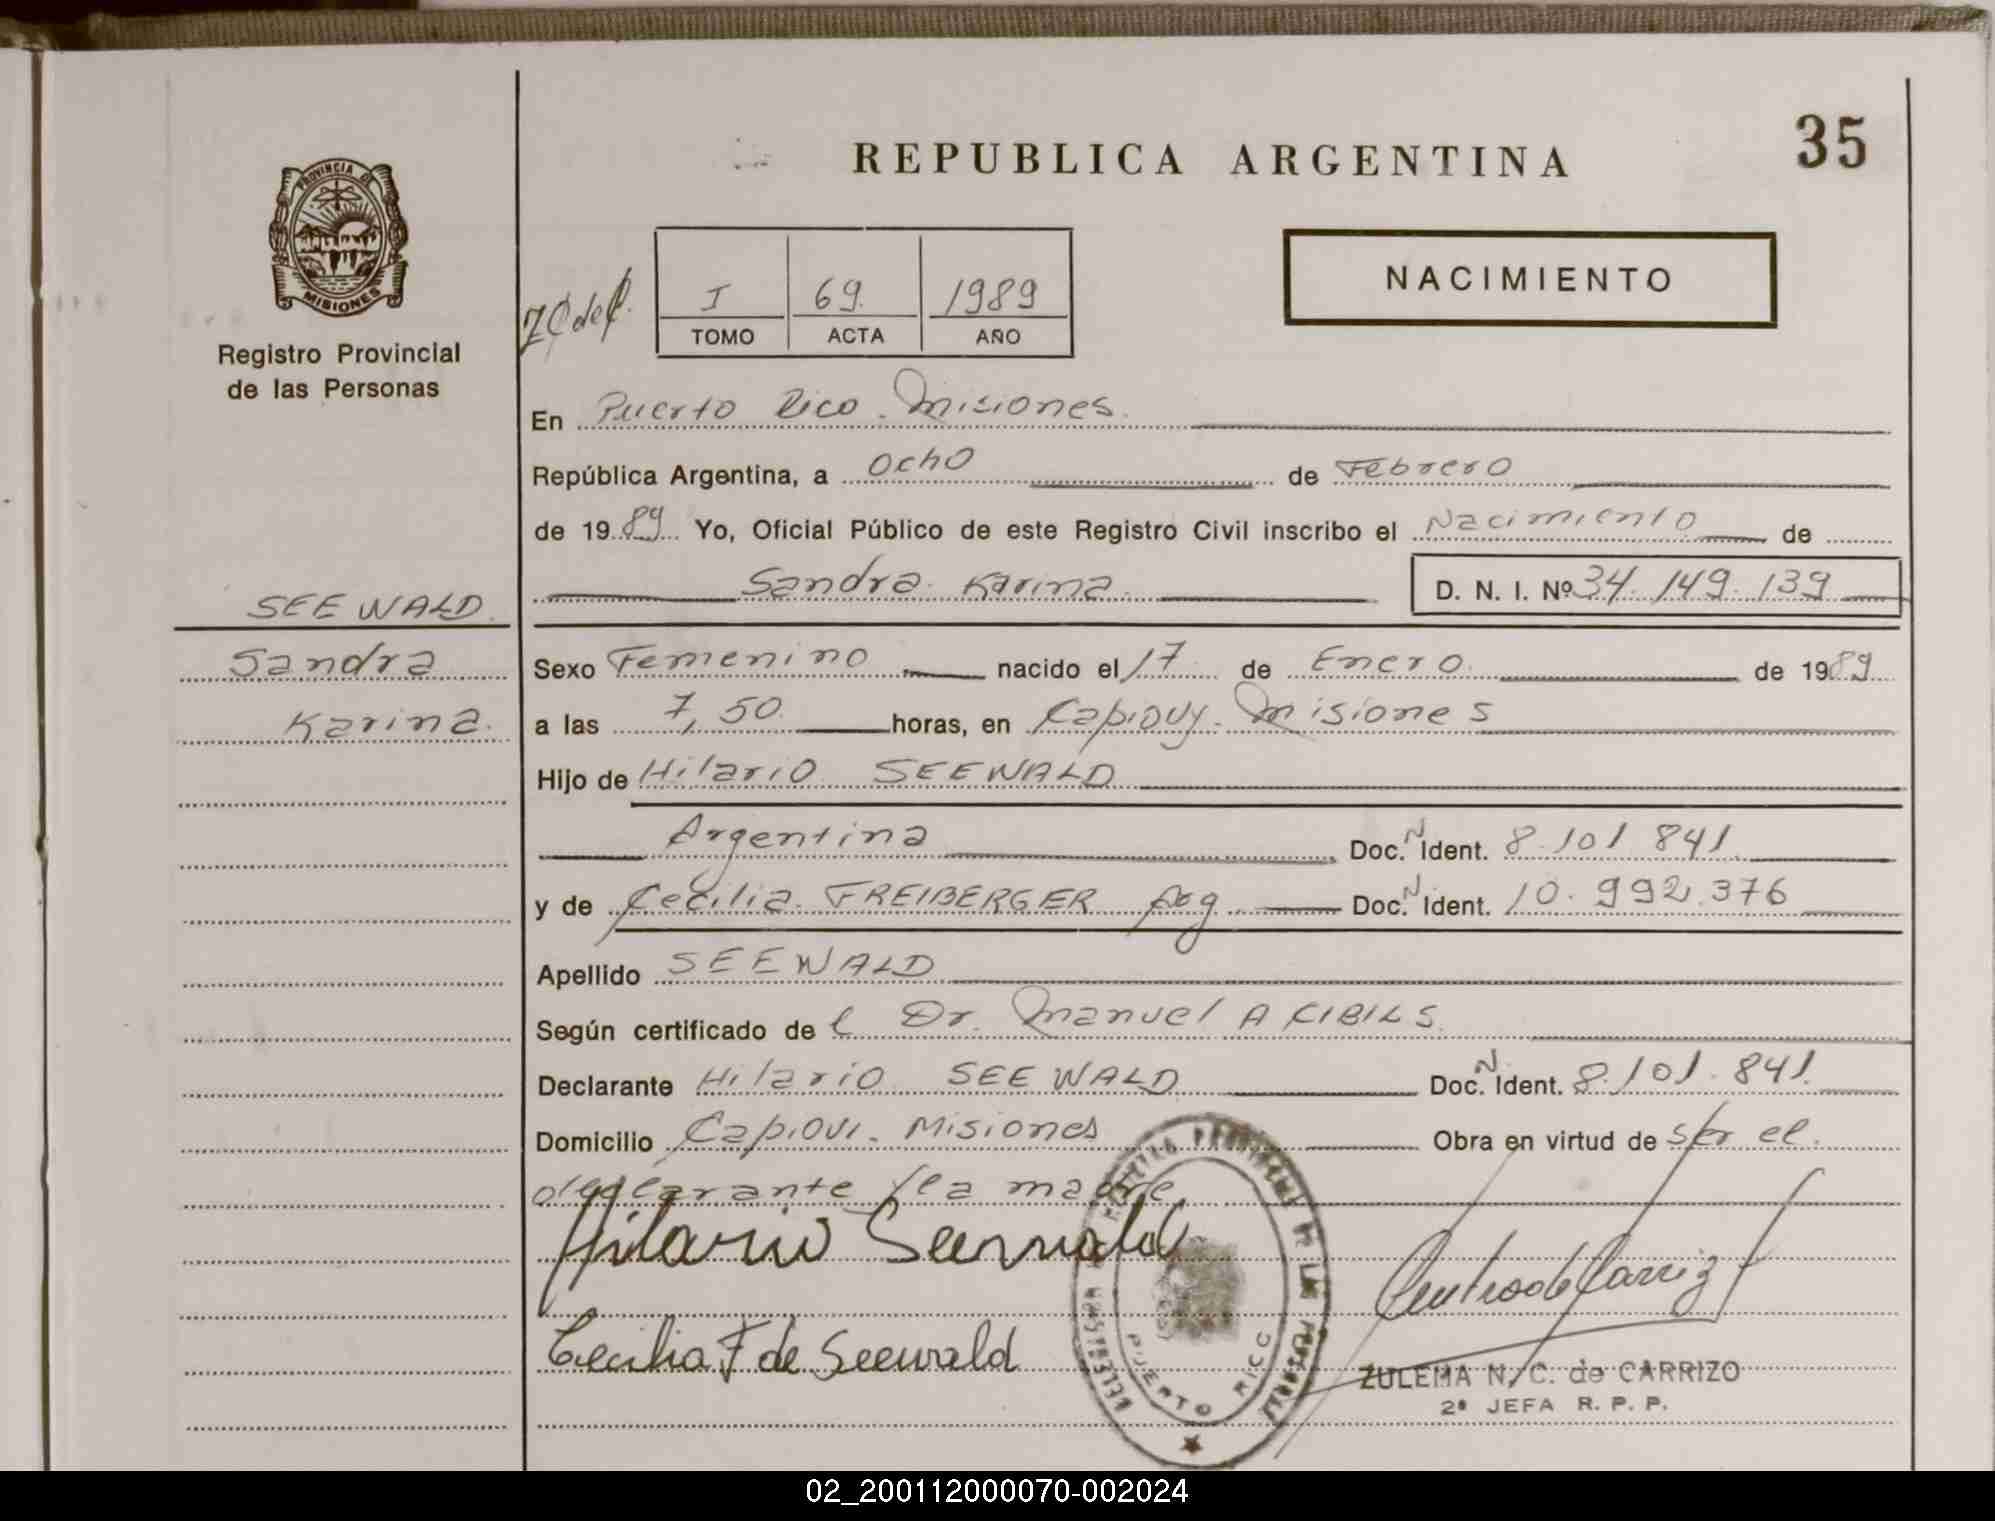 35
REPUBLICA ARGENTINA
PROVINCIA DE
MISIONES
Registro Provincial
de las Personas
NACIMIENTO
I 69. 1989
TOMO ACTA AÑO
En Puerto Rico. Misiones.
República Argentina, a Ocho de Febrero
de 1989 Yo, Oficial Público de este Registro Civil inscribo el Nacimiento de
Sandra Karina D. N. I. Nº 34.149.139
SEEWALD.
Sandra
Karina.
Sexo Femenino nacido el 17 de Enero de 1989
a las 7,50 horas, en Capiovy. Misiones
Hijo de Hilario SEEWALD
Argentina Doc. N Ident. 8.101.841
y de Cecilia FREIBERGER Arg Doc. N Ident. 10.992.376
Apellido SEEWALD
Según certificado del Dr. Manuel A CIBILS.
Declarante Hilario SEEWALD Doc. N Ident. 8.101.841.
Domicilio Capiovi. Misiones Obra en virtud de ser el
declarante y la madre
Hilario Seewald
Cecilia F de Seewald
PUERTO RICO
ZULEMA N. C. de CARRIZO
2ª JEFA R. P. P.
02_200112000070-002024